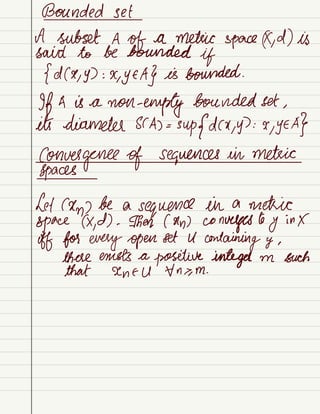 Bounded set
A subset A of a metric space (X,d) is
said to be bounded if
{d(x,y) : x,y ∈ A} is bounded.
If A is a non-empty bounded set,
its diameter δ(A) = sup{d(x,y) : x,y ∈ A}
Convergence of sequences in metric
spaces
Let (xn) be a sequence in a metric
space (X,d). Then (xn) converges to y in X
iff for every open set U containing y,
there exists a positive integer m such
that xn ∈ U ∀ n ≥ m.